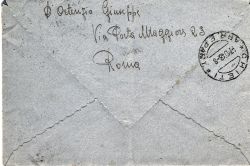 D'Ortenzio Giuseppe
Via Porta Maggiore 23
Roma
CHIETI